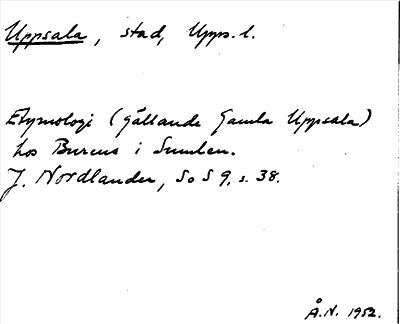 Uppsala, stad, Upps. l.
Etymologi (gällande Gamla Uppsala)
hos Bureus i Sumlen.
J. Nordlander, SoS 9, s. 38.
Å.N. 1952.